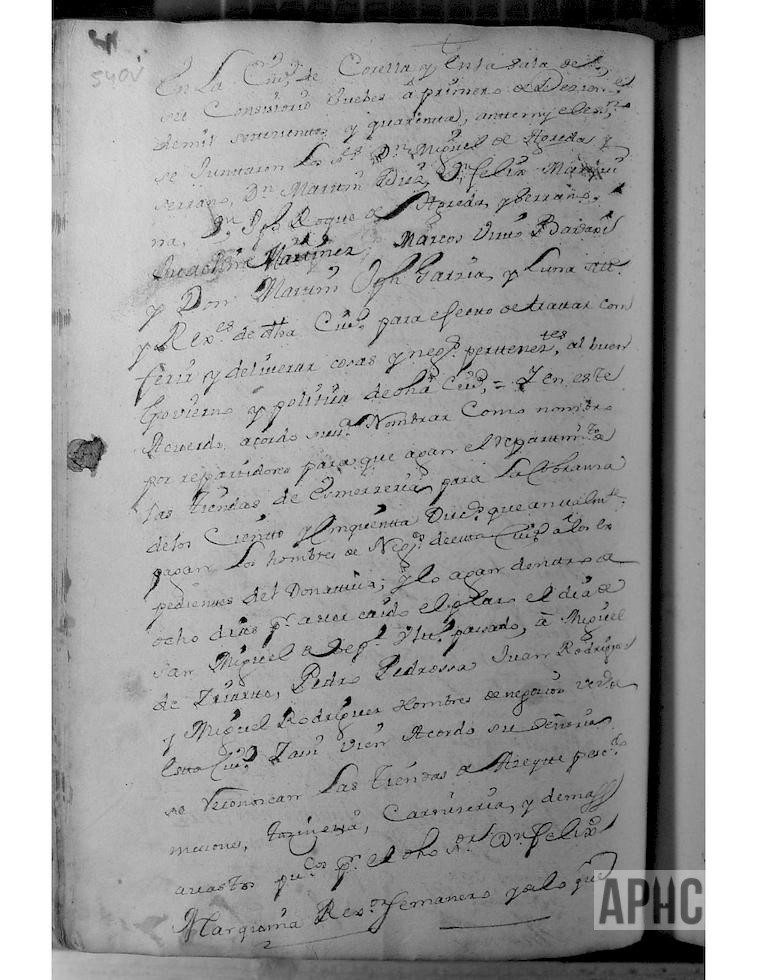 540v
En La Ciu.d de Corella y En la sala de
su Consistorio Juebes a primero de Dez.re
de mil settecientos y quarenta, antemy el es.no
se Juntaron Los S.res D.n Miguel de Agreda y
serrano, D.n Martin Diez, D.n felix Marqui
na, D.n Jph Roque de Agreda, y serrano,
Juachin Martinez, Marcos Virto
y Don Martin Jph Garcia, y Luna All.e
y Rex.es de dha Ciu.d para efecto de trattar con
ferir y deliverar cosas y neg.s perttenez.tes al buen
Govierno y politica de dha Ciu.d = Y en este
Acuerdo acordo su s.a Nombrar Como nombro
por repartidores para que agan el repartim.to a
las tiendas de Comerceria para La Cobranza
de los Ciento y Cinquenta Duc.s que anualm.te
pagan Los hombres de Neg.s de esta Ciu.d a los ex
pedientes del Donattivo; y lo agan dentro de
ocho dias p.r aver caido el plazo el dia de
san Miguel de sep.e Ult.o passado, a Miguel
de Yriarte, Pedro Pedrossa Juan Rodriguez
y Miguel Rodriguez Hombres de negocios vez.s de
esta Ciu.d Tam vien Acordo su señoria
se reconozcan Las tiendas de Azeyte pesc.o
menciones, tozineria, Carniceria, y demas
avastos pu.cos p.r el dho s.or D.n felix
Marquina Rex.or semanero y a lo que